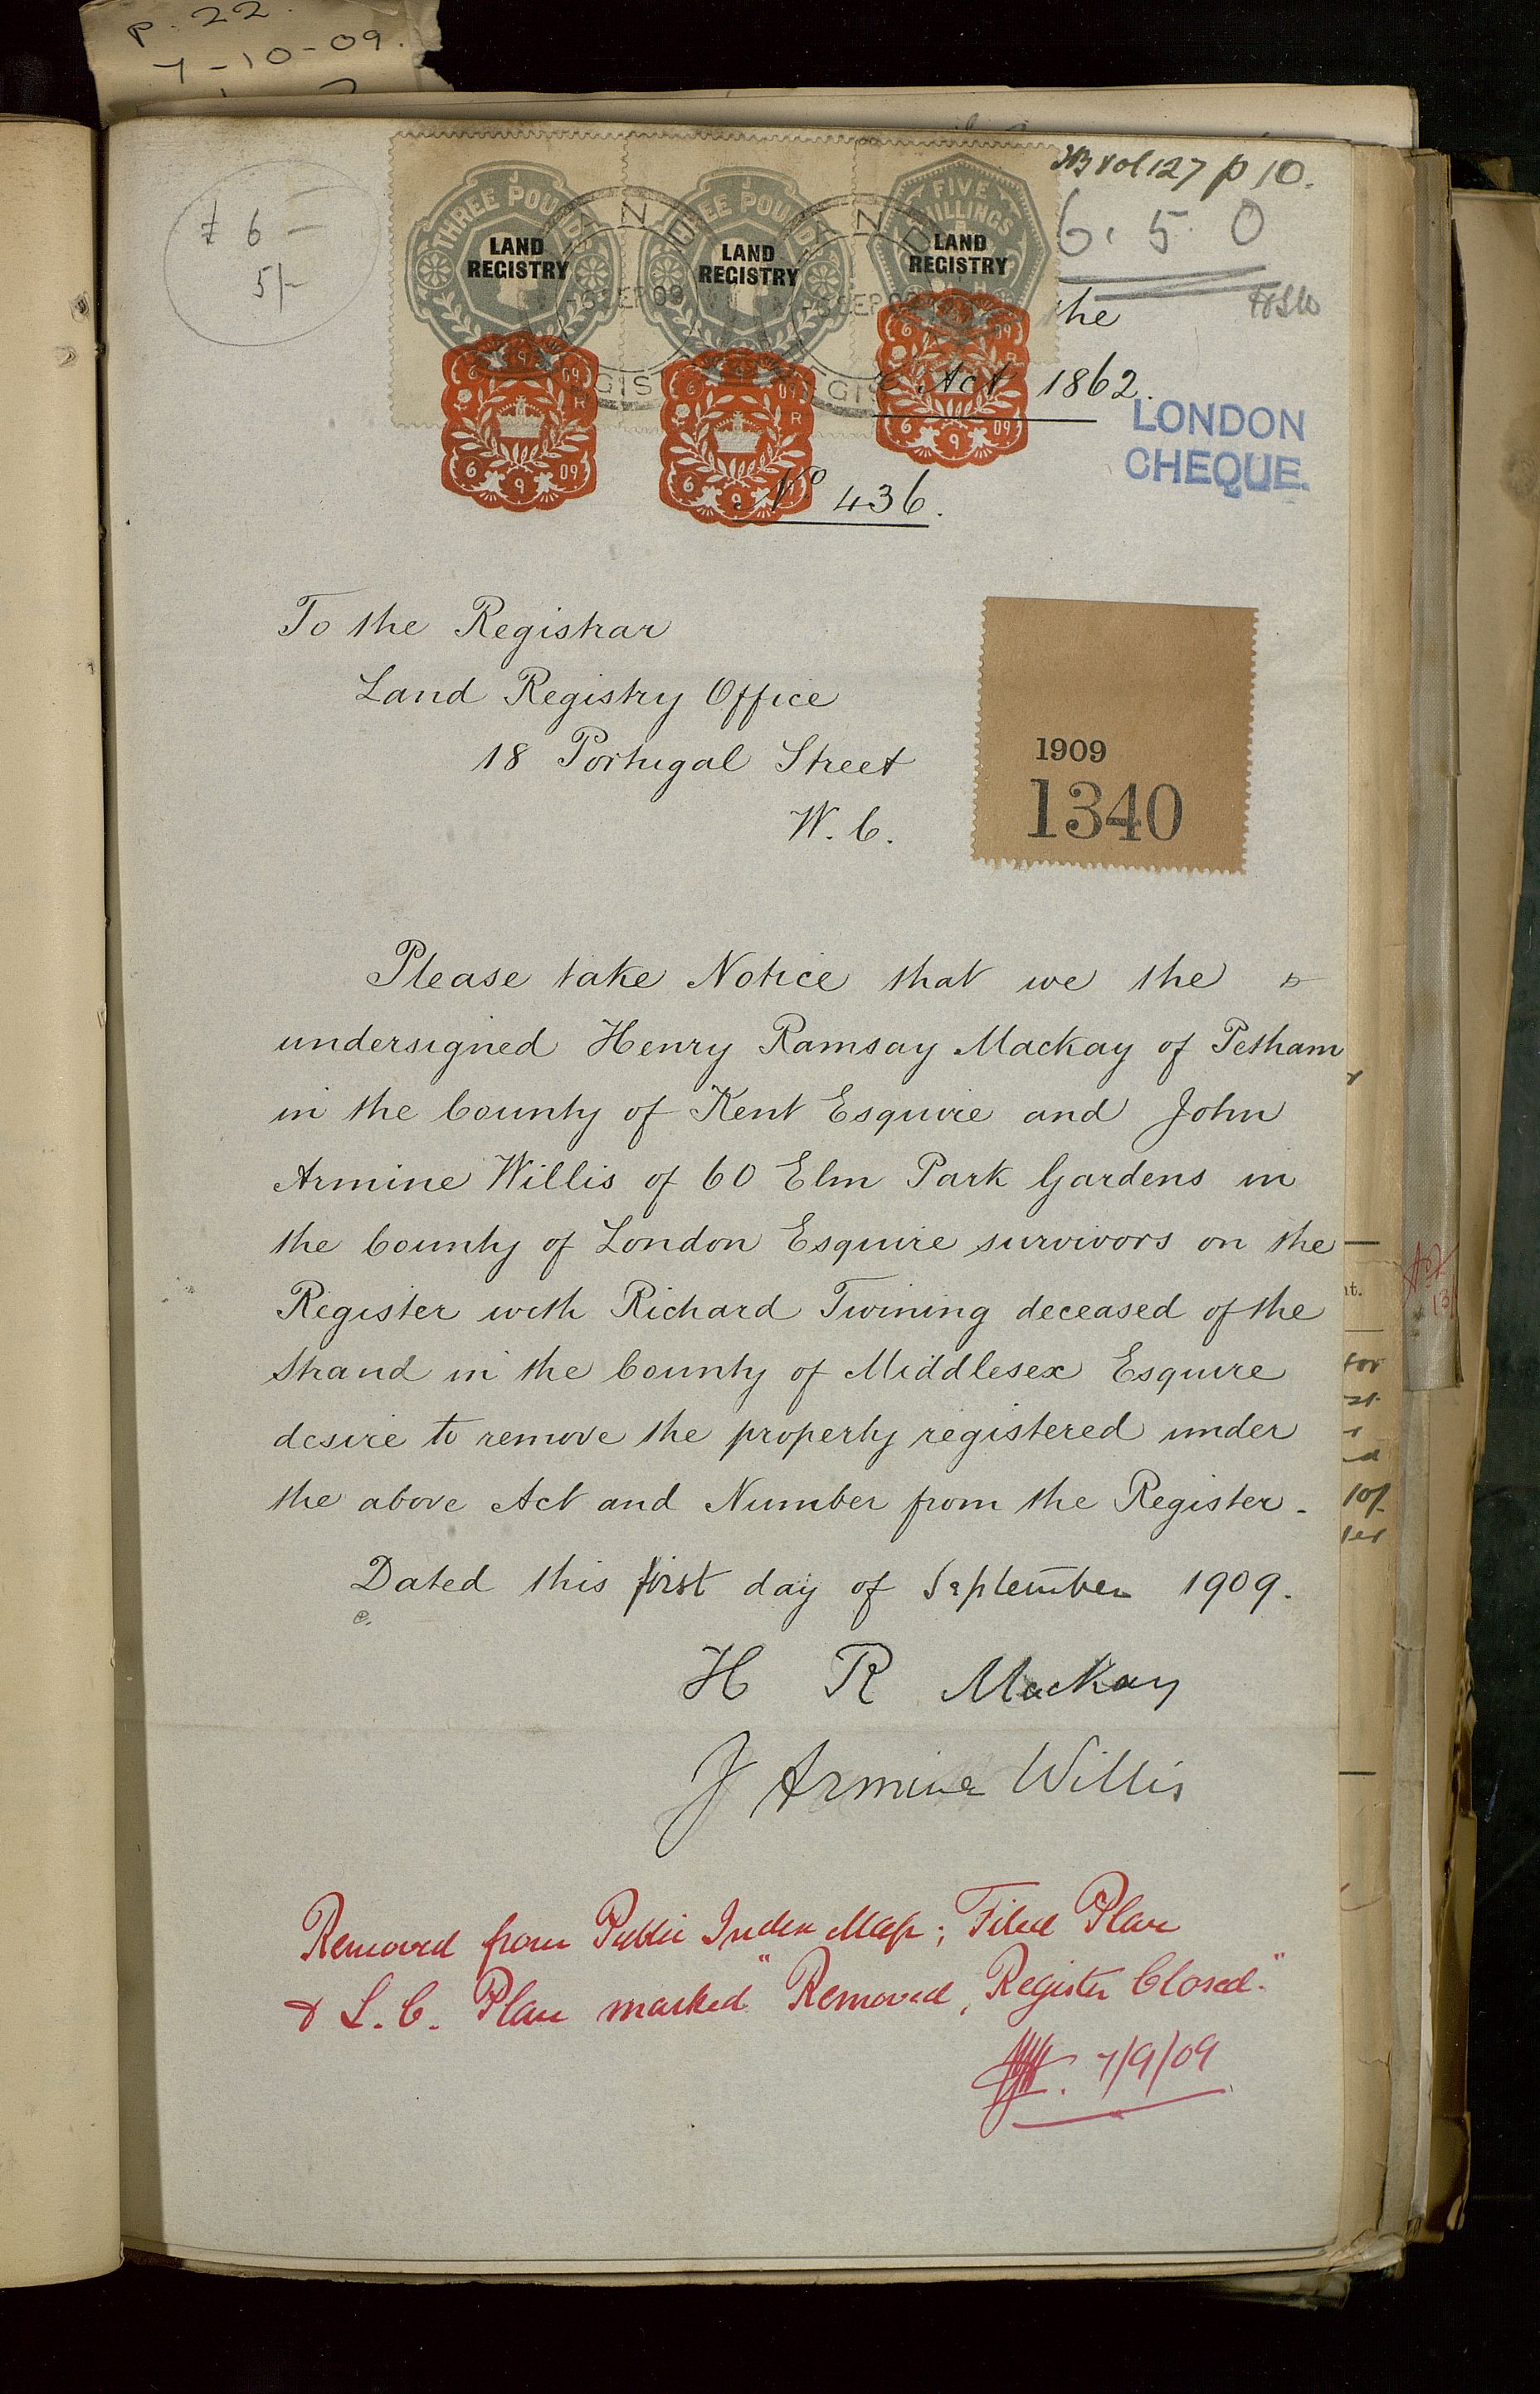 p. 22.
7-10-09.
£ 6 —
5/-
THREE POUNDS
LAND
REGISTRY
THREE POUNDS
LAND
REGISTRY
FIVE
SHILLINGS
LAND
REGISTRY
- 6 SEP 09
- 6 SEP 09
vol 127 p 10.
6. 5. 0
the
Act 1862.
LONDON
CHEQUE.
No 436.
To the Registrar
Land Registry Office
18 Portugal Street
W. C.
1909
1340
Please take Notice that we the
undersigned Henry Ramsay Mackay of Petham
in the County of Kent Esquire and John
Armine Willis of 60 Elm Park Gardens in
the County of London Esquire survivors on the
Register with Richard Twining deceased of the
Strand in the County of Middlesex Esquire
desire to remove the property registered under
the above Act and Number from the Register.
Dated this first day of September 1909.
H R Mackay
J Armine Willis
Removed from Public Index Map; Filed Plan
& L. C. Plan marked "Removed, Register Closed."
7/9/09